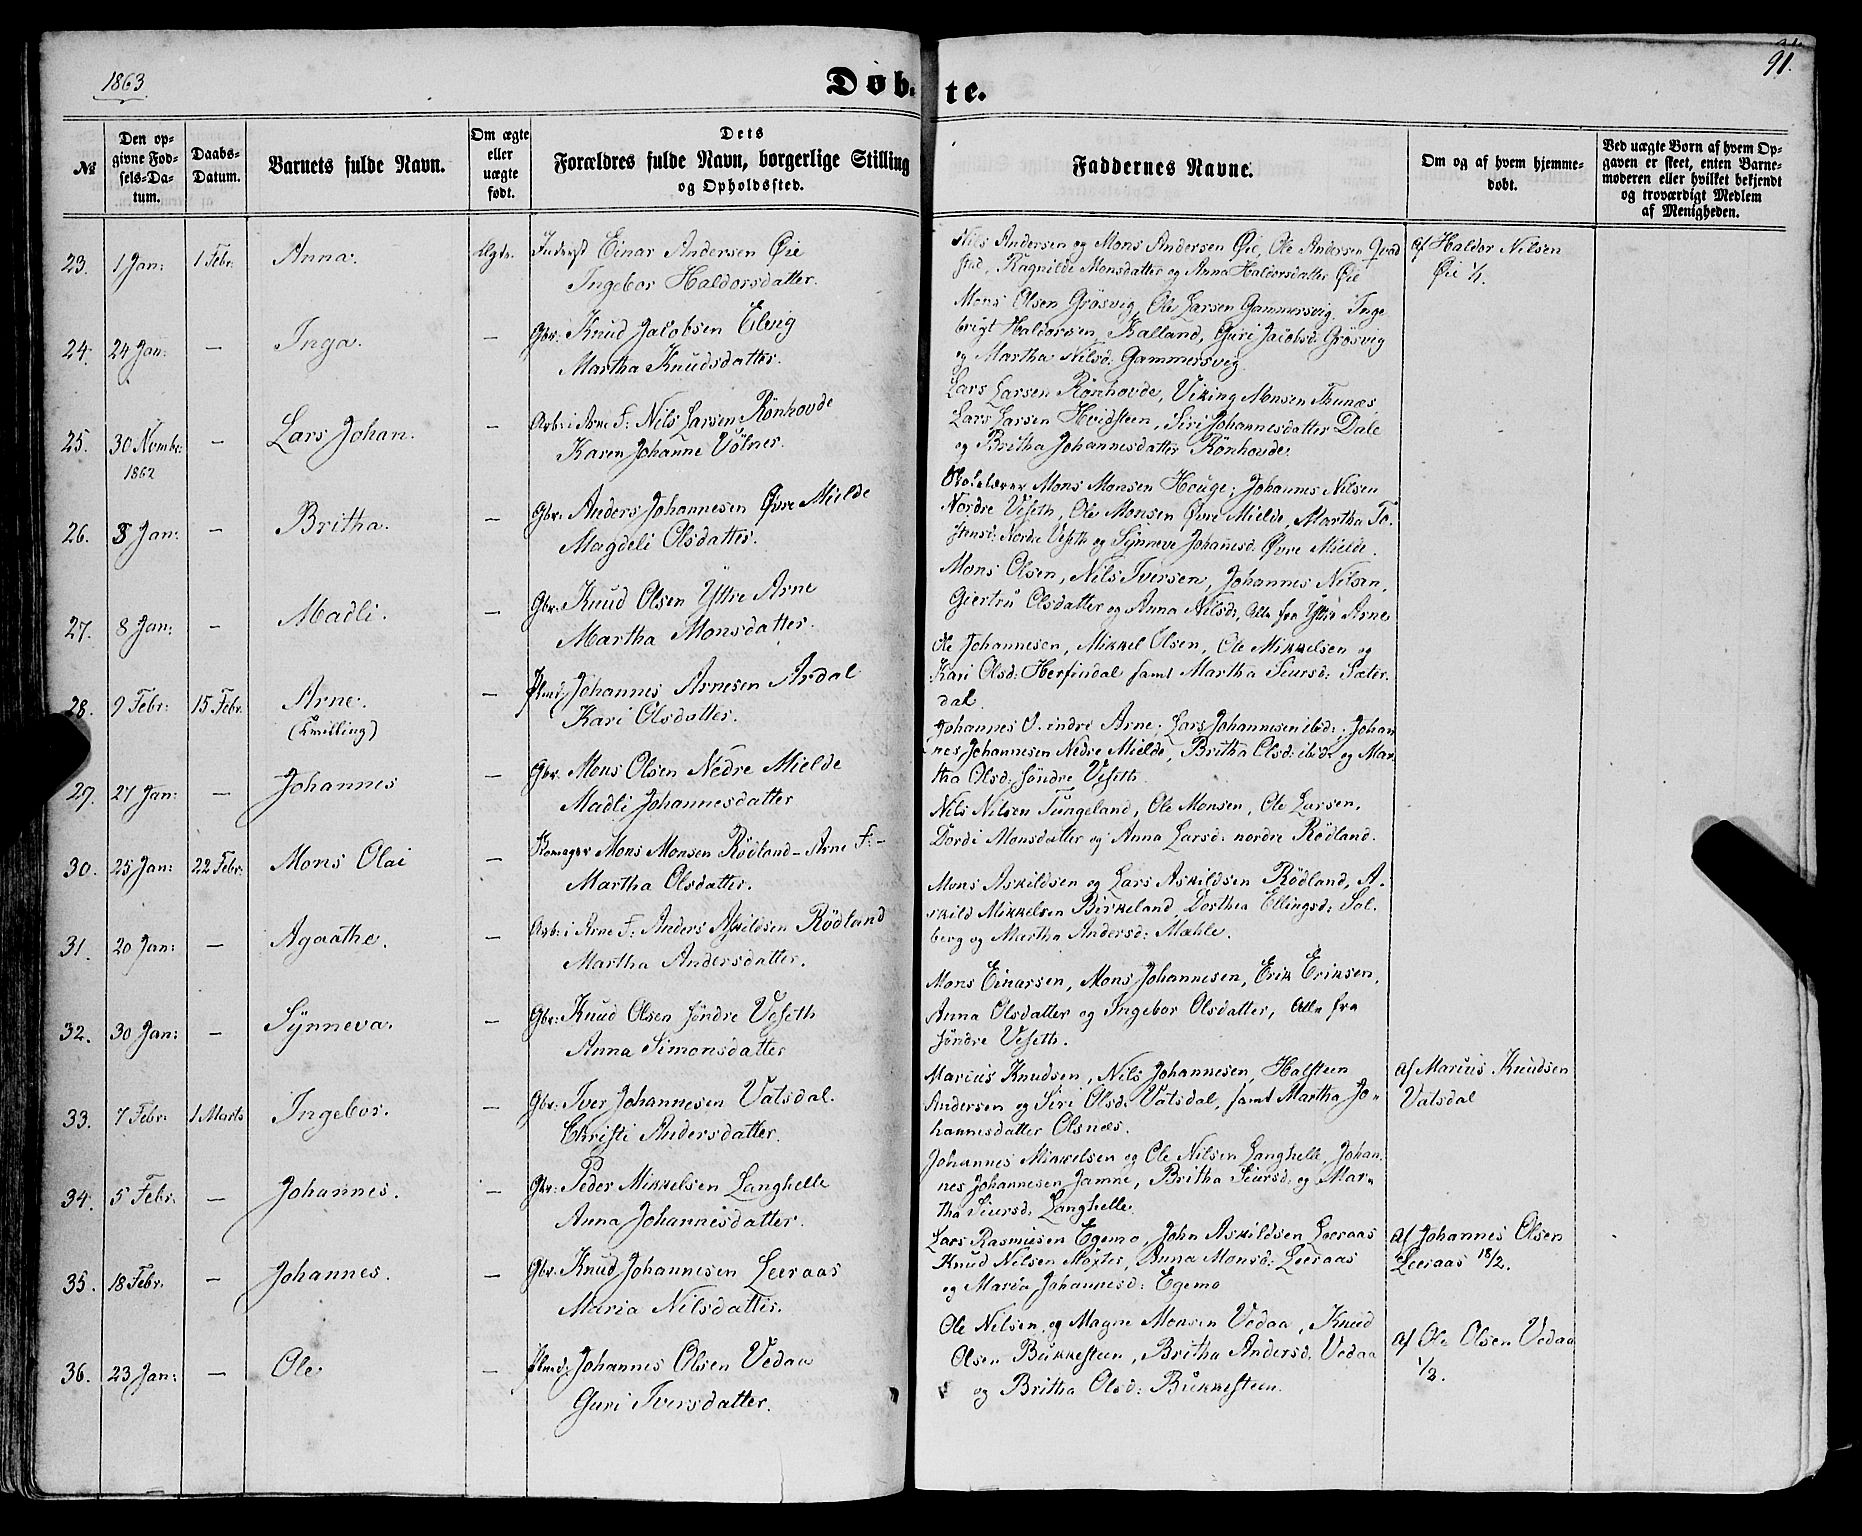 1863
Døb-te.
91.
№
Den opgivne Fødsels-Datum.
Daabs-Datum.
Barnets fulde Navn.
Om ægte eller uægte født.
Dets Forældres fulde Navn, borgerlige Stilling og Opholdssted.
Faddernes Navne.
Om og af hvem hjemmedøbt.
Ved uægte Børn af hvem Opgaven er skeet, enten Barnemoderen eller hvilket bekjendt og troværdigt Medlem af Menigheden.
23. 1 Jan: 1 Febr: Anna. Ægte. Inderst Einar Andersen Øie
Ingebor Haldorsdatter.
Nils Andersen og Mons Andersen Øie, Ole Andersen
Ragnilde Monsdatter og Anna Haldorsdatter Øie
af Haldor Nilsen
Øie 1/1.
24. 24 Jan: — Inga. — Gbr: Knud Jacobsen Eilvig
Martha Knudsdatter.
Mons Olsen Grøsvig, Ole Larsen Gammersvig, Inge
brigt Haldorsen Kalland, Guri Jacobsd: Grøsvig
og Martha Nilsd: Gammersvig
25. 30 Novmbr: 1862 — Lars Johan. — Arb: i Arne F: Nils Larsen Rönhovde
Karen Johanne Völner.
Lars Larsen Rønhovde, Viking Monsen Tunæs,
Lars Larsen Hvidsteen, Siri Johannesdatter Dale
og Britha Johannesdatter Rönhovde.
26. 8 Jan: — Britha. — Gbr: Anders Johannesen Øvre Mielde
Magdeli Olsdatter.
Skolelærer Mons Monsen Houge, Johannes Nilsen
Nordre Veseth, Ole Monsen Øvre Mielde, Martha To-
stensd: Nordre Veseth og Synneve Johanesd: Øvre Mielde.
27. 8 Jan: — Madli. — Gbr: Knud Olsen Yttre Arne
Martha Monsdatter.
Mons Olsen, Nils Iversen, Johannes Nilsen,
Giertru Olsdatter og Anna Nilsd:, Alle fra Yttre Arne
28. 9 Febr: 15 Febr. Arne. (Tvilling) — Plmd: Johannes Arnesen Ardal
Kari Olsdatter.
Ole Johannesen, Mikkel Olsen, Ole Mikkelsen og
Kari Olsd: Herfindal samt Martha Siursd: Sæter-
dal.
29. 27 Jan: — Johannes — Gbr. Mons Olsen Nedre Mielde
Madli Johannesdatter
Johannes O. indre Arne, Lars Johannesen ibid:, Johan
nes Johannesen Nedre Mielde, Britha Olsd: ibid: og Mar
tha Olsd: Søndre Veseth.
30. 25 Jan: 22 Febr: Mons Olai — Mons Monsen Rödland - Arne F: -
Martha Olsdatter.
Nils Nilsen Tungeland, Ole Monsen, Ole Larsen,
Dordi Monsdatter og Anna Larsd: nordre Rödland.
31. 20 Jan: — Agaathe. — Arb: i Arne F: Anders Askildsen Rødland
Martha Andersdatter.
Mons Askildsen og Lars Askildsen Rödland, A-
skild Mikkelsen Birkeland, Dorthea Ellingsd: Sol-
berg og Martha Andersd: Mæhle.
32. 30 Jan: — Synneva. — Gbr: Knud Olsen Søndre Veseth
Anna Simonsdatter
Mons Einarsen, Mons Johannesen, Erik Eriksen,
Anna Olsdatter og Ingebor Olsdatter, Alle fra
Søndre Veseth.
33. 7 Febr: 1 Marts Ingebor. — Gbr: Iver Johannesen Vatsdal.
Christi Andersdatter.
Marius Knudsen, Nils Johannesen, Halsteen
Andersen og Siri Olsd: Vatsdal, samt Martha Jo-
hannesdatter Olsnæs.
af Marius Knudsen
Vatsdal
34. 5 Febr: — Johannes. — Gbr: Peder Mikkelsen Langhelle
Anna Johannisdatter.
Johannes Mikkelsen og Ole Nilsen Langhelle, Johan-
nes Johannesen Jamne, Britha Siursd: og Mar-
tha Siursd: Langhelle.
35. 18 Febr: — Johannes. — Gbr: Knud Johannesen Leeraas
Maria Nilsdatter.
Lars Rasmusen Egemo, John Askildsen Leeraas
Knud Nilsen Møxter, Anna Monsd: Leeraas
og Maria Johannesd: Egemo
af Johannes Olsen
Leeraas 18/2.
36. 23 Jan: — Ole — Plmd: Johannes Olsen Vedaa
Guri Iversdatter.
Ole Nilsen og Magne Monsen Vedaa, Knud
Olsen Bukkesteen, Britha Andersd: Vedaa
og Britha Olsd: Bukkesteen.
af Ole Olsen Vedaa
1/2.